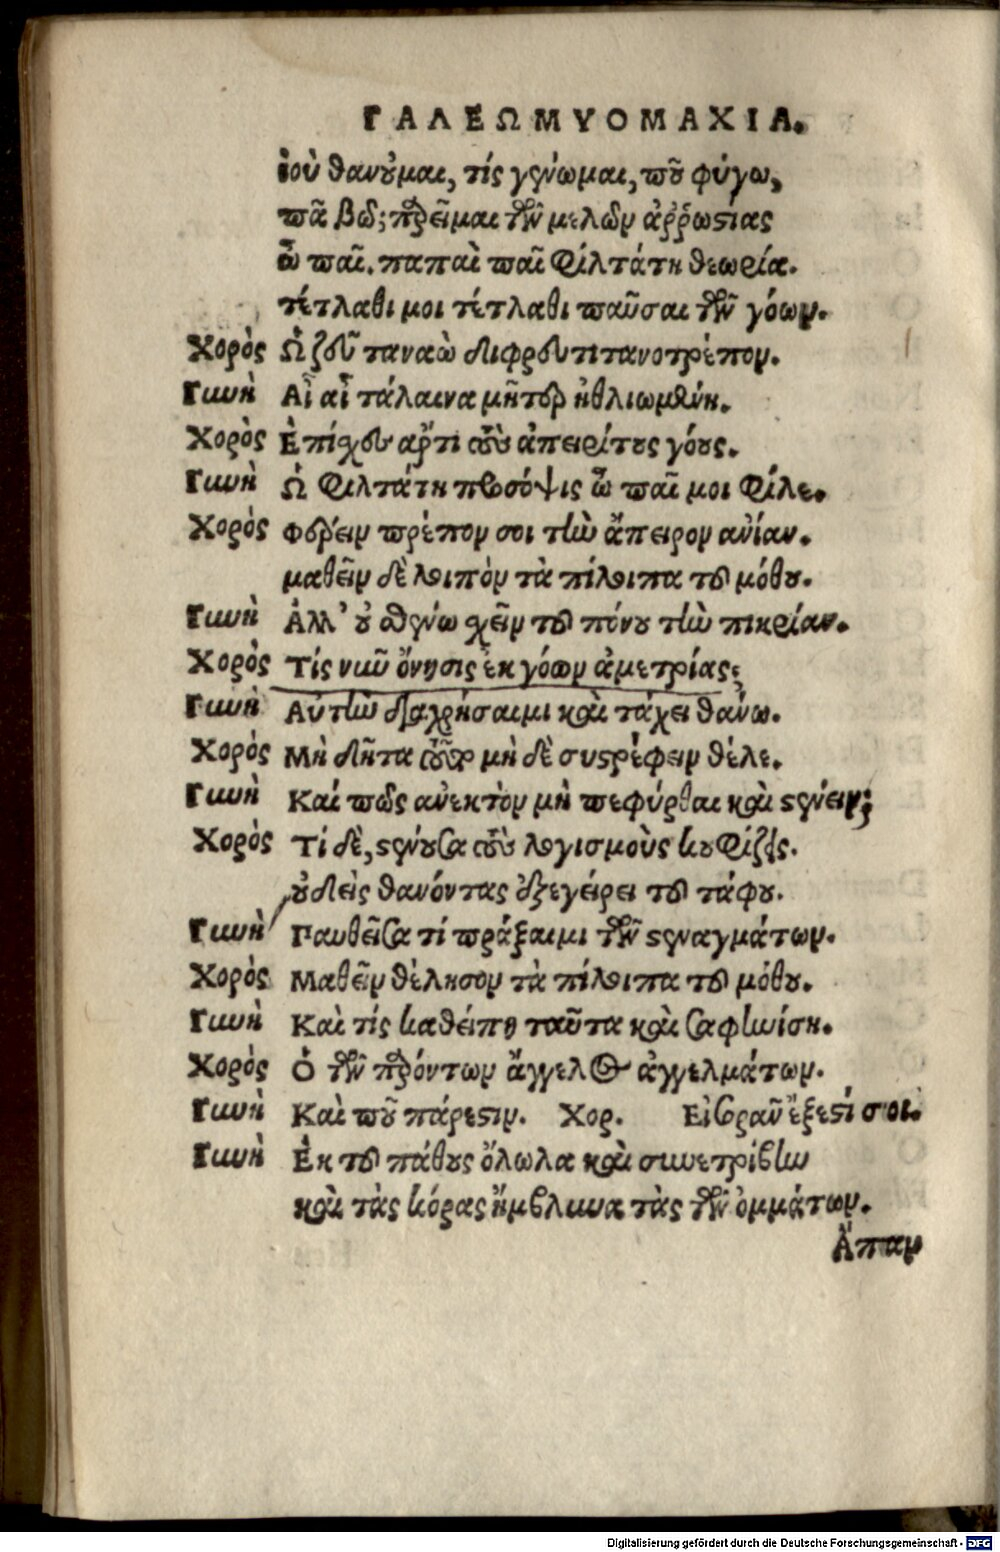 ΓΑΛΕΩΜΥΟΜΑΧΙΑ.
ἰοὺ θανοῦμαι, τίς γένωμαι, ποῦ φύγω,
πᾶ βῶ; παρεῖμαι τῶν μελῶν ἀῤῥωστίας
ὦ παῖ. παπαὶ παῖ φιλτάτη θεωρία.
τέτλαθι μοι τέτλαθι παῦσαι τῶν γόων.
Χορὸς Ὦ ζεῦ ταναὼ διφρευτιτανοτρέπον.
Γυνὴ Αἲ αἲ τάλαινα μῆτερ ἠθλιωμένη.
Χορὸς Ἐπίχου ἄρτι τοὺς ἀπειρίτους γόους.
Γυνὴ Ὦ φιλτάτη πρόσοψις ὦ παῖ μοι φίλε.
Χορὸς Φέρειν πρέπον σοι τὴν ἄπειρον ἀνίαν.
μαθεῖν δὲ λοιπὸν τὰ πίλοιπα τοῦ μόθου.
Γυνὴ Ἀλλ' οὐ σθένω χεῖν τοῦ πόνου τὴν πικρίαν.
Χορὸς Τίς νῦν ὄνησις ἐκ γόων ἀμετρίας;
Γυνὴ Αὐτὴν διαχρήσαιμι καὶ τάχει θάνω.
Χορὸς Μὴ δῆτα μὴ δὲ συστρέφειν θέλε.
Γυνὴ Καί πῶς ἀνεκτὸν μὴ πεφύρθαι καὶ στένειν;
Χορὸς Τί δὲ, στένουσα τοὺς λογισμοὺς κουφίζεις.
οὐδεὶς θανόντας ἐξεγείρει τοῦ τάφου.
Γυνὴ Γαυθεῖσα τί πράξαιμι τῶν στεναγμάτων.
Χορὸς Μαθεῖν θέλησον τὰ πίλοιπα τοῦ μόθου.
Γυνὴ Καὶ τίς καθείπῃ ταῦτα καὶ σαφηνίσῃ.
Χορὸς Ὁ τῶν παρόντων ἄγγελος ἀγγελμάτων.
Γυνὴ Καὶ ποῦ πάρεστιν. Χορ. Εἰσορᾶν ἔξεστί σοι.
Γυνὴ Ἐκ τοῦ πάθους ὄλωλα καὶ συνετρίβην
καὶ τὰς κόρας ἤμβλυνα τὰς τῶν ὀμμάτων.
Ἄπαν
Digitalisierung gefördert durch die Deutsche Forschungsgemeinschaft - DFG